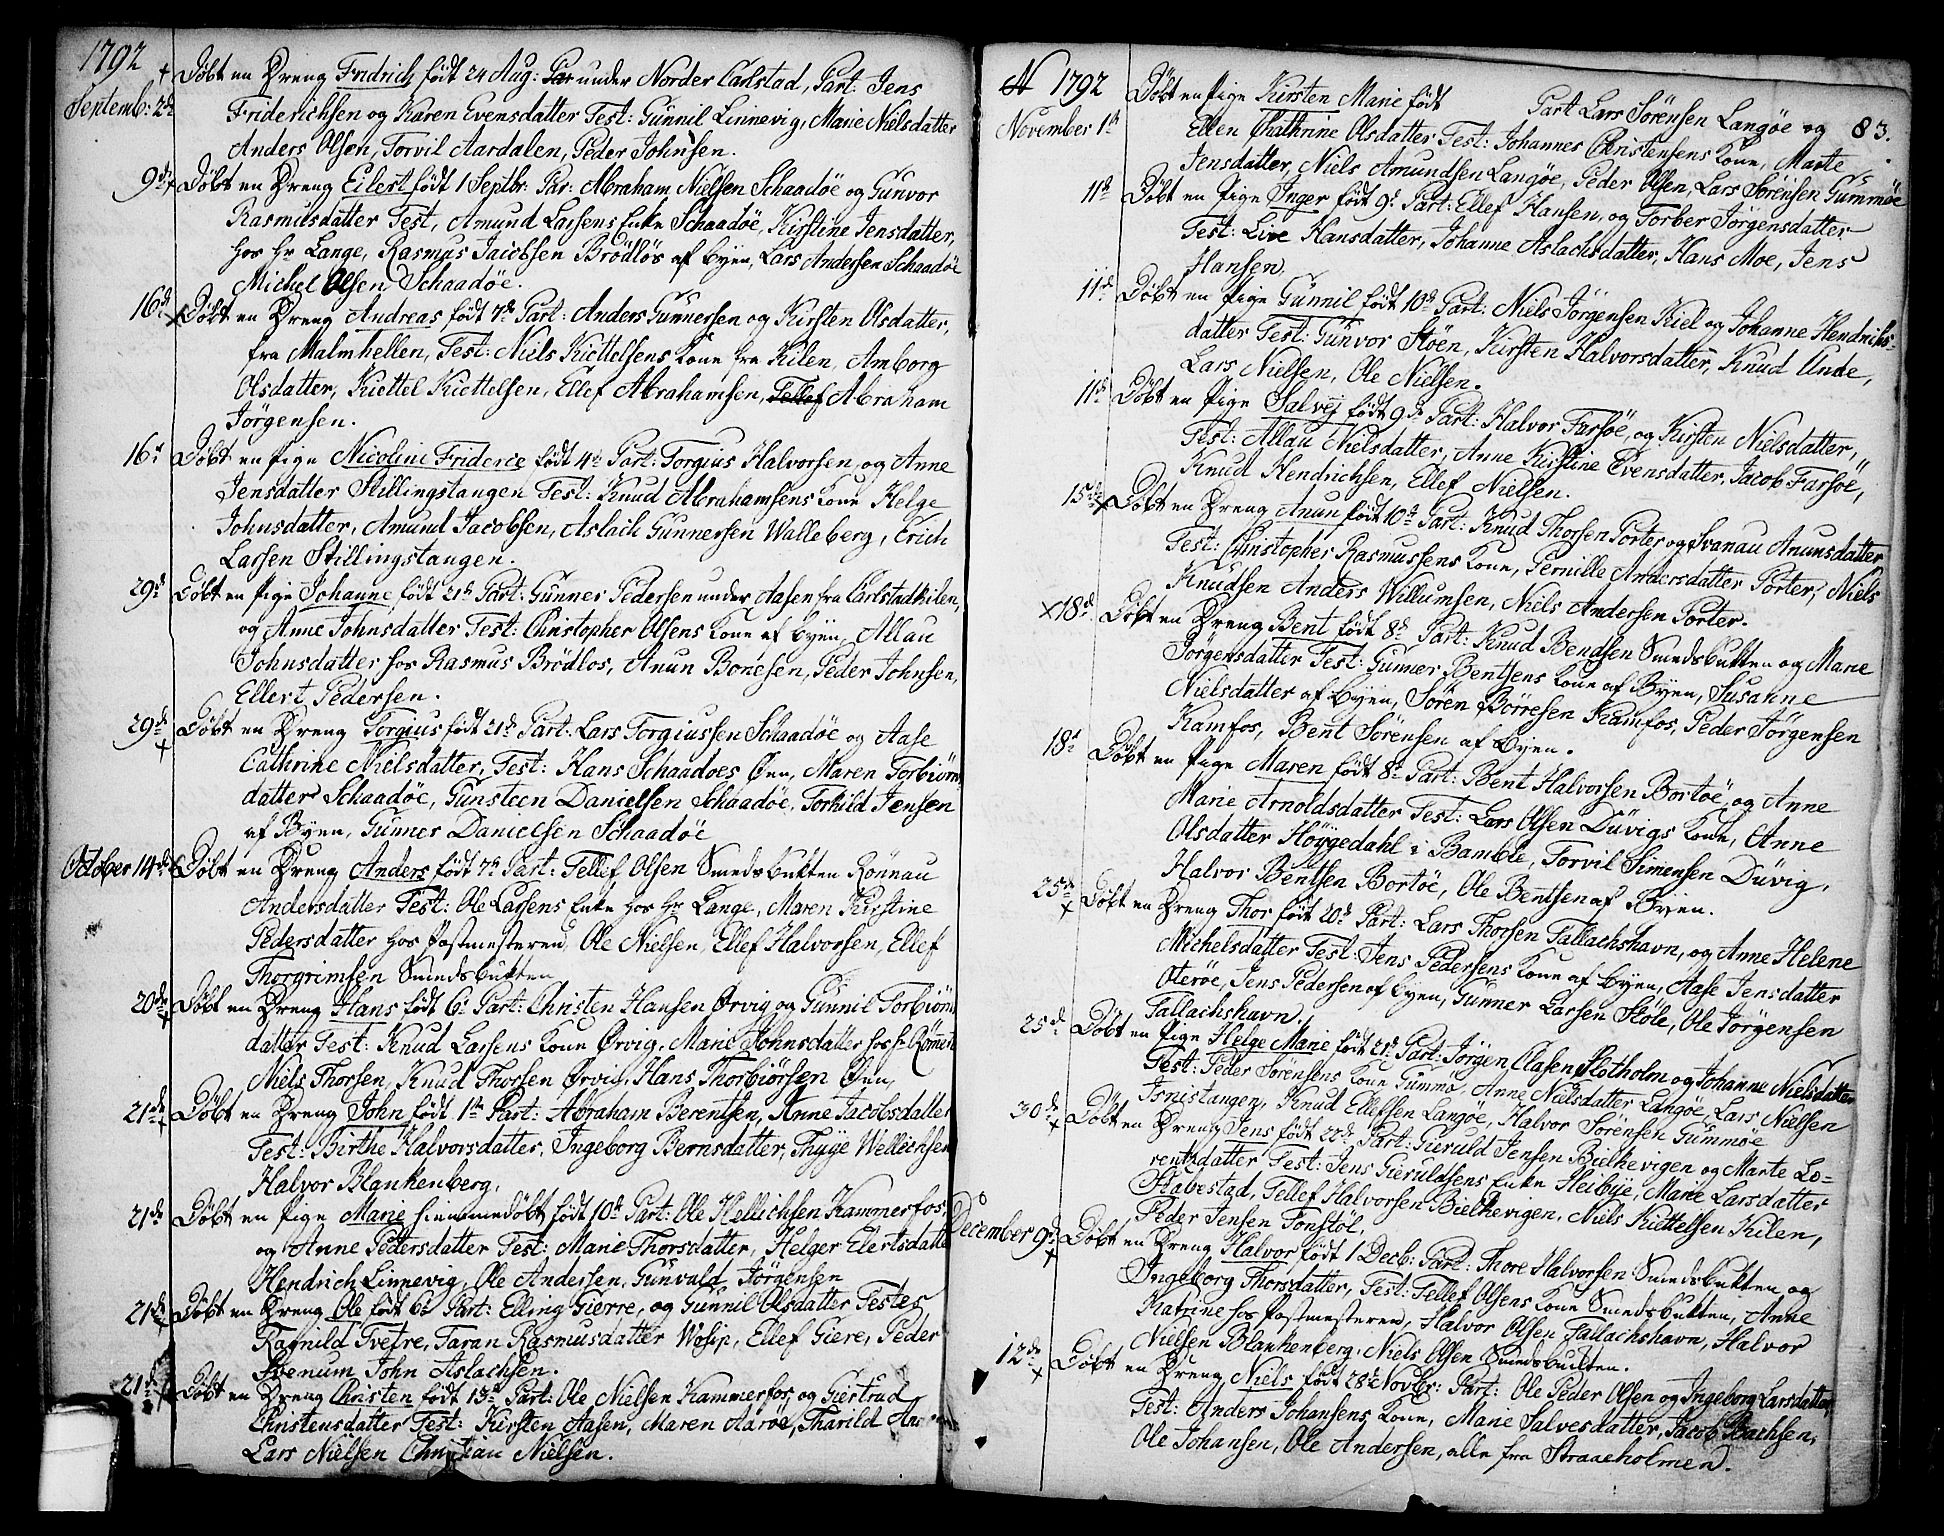 1792
Septemb: 2d
+ Döbt en Dreng Fridrich födt 24 Aug: Par under Norder Carlstad, Part: Jens
Friderichsen og Karen Evensdatter Test: Gunnil Linnevig, Marie Nielsdatter
Anders Olsen, Torvil Aardalen, Peder Johnsen.
9d + Döbt en Dreng Eilert födt 1 Septbr: Par: Abraham Nielsen Schaadöe og Gunvor
Rasmusdatter Test, Amund Larsens Enke Schaadöe, Kirstine Jensdatter,
hos Hr Lange, Rasmus Jacobsen Brödlös af Byen, Lars Andersen Schaadöe
Michel Olsen Schaadöe.
16d x Döbt en Dreng Andreas födt 7d Part: Anders Gunnersen og Kirsten Olsdatter,
fra Malmhellen, Test: Niels Kiettelsens Kone fra Kilen, Amborg
Olsdatter, Kiettel Kiettelsen, Ellef Abrahamsen, Tellef Abraham
Jörgensen.
16d Döbt en Pige Nicolini Friderce födt 4d Part: Torgius Halvorsen, og Anne
Jensdatter Stillingstangen Test: Knud Abrahamsens Kone Helge
Johnsdatter, Amund Jacobsen, Aslach Gunnersen Walleberg, Erich
Larsen Stillingstangen.
29d Döbt en Pige Johanne födt 21d Part: Gunner Pedersen under Aasen fra Carlstadkilen,
og Anne Johnsdatter Test: Christopher Olsens Kone af Byen, Allau
Johnsdatter hos Rasmus Brödlos, Anun Bonesen, Peder Johnsen,
Ellert Pedersen.
29d + Döbt en Dreng Torgius födt 21d Part: Lars Torgiussen Schaadöe og Aase
Cathrine Nielsdatter, Test: Hans Schaadoes Öen, Maren Torbiörns
datter Schaadöe, Gunsteen Danielsen Schaadöe, Torkild Jensen
af Byen, Gunner Danielsen Schaadöe
October 14d Döbt en Dreng Anders födt 7d Part: Tellef Olsen Smedsbukten Rönnau
Andersdatter Test: Ole Larsens Enke hos Hr Lange, Maren Kirstine
Pedersdatter hos Postmesteren, Ole Nielsen, Ellef Halvorsen, Ellef
Thorgrimsen Smedsbukten
20d + Döbt en Dreng Hans födt 6d Part: Christen Hansen Örvig og Gunnil Torbiörns
datter Test: Knud Larsens Kone Örvig, Marie Johnsdatter hos
Niels Thorsen, Knud Thorsen Örvig, Hans Thorbiörsen Öen,
21d + Döbt en Dreng John födt 1d Part: Abraham Berentsen, Anne Jacobsdatter
Test: Birthe Halvorsdatter, Ingeborg Bernsdatter, Thyge Wellechsen
Halvor Blankenberg,
21d Döbt en Pige Marie hiemmedöbt födt 10d Part: Ole Hellichsen Kammerfos,
og Anne Pedersdatter Test: Marie Thorsdatter, Helger Elertsdatter
Hendrich Linnevig, Ole Andersen, Gunvald Jörgensen
21d + Döbt en Dreng Ole födt 6d Part: Elling Gierre, og Gunnil Olsdatter Testes
Ragnild Tvetre, Taran Rasmusdatter Wosip, Ellef Giere, Peder
Stenum John Aslachsen.
21d Döbt en Dreng Christen födt 13d Part: Ole Nielsen Kammerfos, og Giertrud
Christensdatter Test: Kirsten Aasen, Maren Aaröe, Tharild
Lars Nielsen Christian Nielsen.
A 1792
83.
November 1d Döbt en Pige Kirsten Marie födt Part Lars Sörensen Langöe og
Ellen Chathrine Olsdatter Test: Johannes Christensens Kone, Marte
Jensdatter, Niels Amundsen Langöe, Peder Olsen, Lars Sörensen Gummöe
11d Döbt en Pige Inger födt 9d Part: Ellef Hansen, og Torber Jörgensdatter
Test: Live Hansdatter, Johanne Aslachsdatter, Hans Moe, Jens
Hansen.
11d Döbt en Pige Gunnil födt 10d Part: Niels Jörgensen Kiel og Johanne Hendrichs-
datter Test: Gunvor Stöen, Kirsten Halvorsdatter, Knud Unde,
Lars Nielsen, Ole Nielsen.
11d Döbt en Pige Salvej födt 9d Part: Halvor Farsöe, og Kirsten Nielsdatter,
Test: Allau Nielsdatter, Anne Kirstine Evensdatter, Jacob Farsöe,
Knud Hendrichsen, Ellef Nielsen.
15d x Döbt en Dreng Anun födt 10d Part: Knud Thorsen Porter og Svanau Anunsdatter
Test: Christopher Rasmussens Kone, Pernille Andersdatter Porter, Niels
Knudsen Anders Willumsen, Niels Andersen Porter.
x 18d Döbt en Dreng Bent födt 8d Part: Knud Bendsen Smedsbukten og Marie
Jörgensdatter Test: Gunner Bentsens Kone af Byen, Susanne
Nielsdatter af Byen, Sören Börresen Kamfos, Peder Jörgensen
Kamfos, Bent Sörensen af Byen.
18d Döbt en Pige Maren födt 8d Part: Bent Halvorsen Bortöe, og Anne
Marie Arnoldsdatter Test: Lars Olsen Düvigs Kone, Anne
Olsdatter Höygedahl i Bamble, Torvil Simensen Düvig,
Halvor Bentsen Bortöe, Ole Bentsen af Byen.
25d + Döbt en Dreng Thor födt 20d Part: Lars Thorsen Tallachshavn, og Anne Helene
Michelsdatter Test: Jens Pedersens Kone af Byen, Aase Jensdatter
Oteröe, Jens Pedersen af Byen, Gunner Larsen Stöle, Ole Jörgensen
Tallachshavn.
25d Döbt en Pige Helge Marie födt 21d Part: Jörgen Clasen Slotholm og Johanne Nielsdatter
Test: Peder Sörensens Kone Gummö, Anne Nielsdatter Langöe, Lars Nielsen
Isnistangen, Knud Ellefsen Langöe, Halvor Sörensen Gummöe
30d + Döbt en Dreng Jens födt 22d Part: Gieruld Jensen Bielkevigen og Marte Lo-
rentzdatter Test: Jens Gieruldsens Enke Heibye, Marie Larsdatter
Stabestad, Tellef Halvorsen Bielkevigen, Niels Kiettelsen Kilen,
Peder Jensen Tonstöl.
December 9d + Döbt en Dreng Halvor födt 1 Decb: Part: Thore Halvorsen Smedsbukten og
Ingeborg Thorsdatter, Test: Tellef Olsens Kone Smedsbukten, Anne
Katrine hos Postmesteren, Halvor Olsen Tallachshavn, Halvor
Nielsen Blankenberg, Niels Olsen Smedsbukten.
12d + Döbt en Dreng Niels födt 28d Novbr: Part: Ole Peder Olsen og Ingeborg Larsdatter,
Test: Anders Johansens Kone, Marie Salvesdatter, Jacob
Ole Johansen, Ole Andersen, alle fra Straaeholmen.